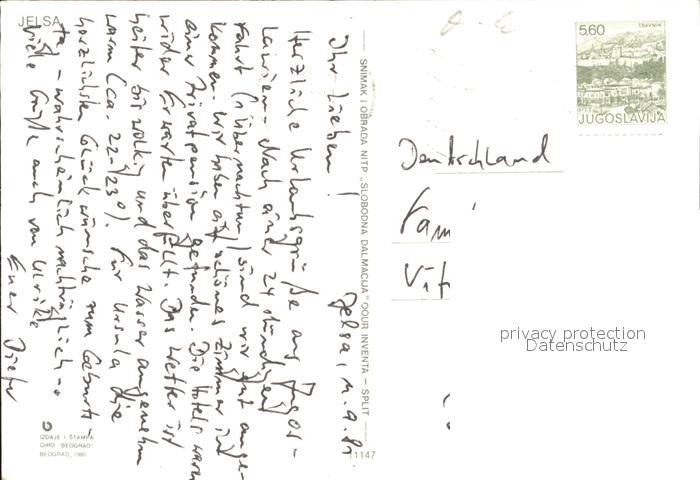 JELSA
Jelsa, 11.9.81
Ihr Lieben!
Herzliche Urlaubsgrüße aus Jugos-
lawien. Nach einer 24 stündigen
Fahrt (1 Übernachtung) sind wir gut ange-
kommen. Wir haben ein schönes Zimmer in
einer Privatpension gefunden. Die Hotels waren
wider Erwarten überfüllt. Das Wetter ist
heiter bis wolkig und das Wasser angenehm
warm (ca. 22-23°). Für Ursula die
herzlichsten Glückwünsche zum Geburts-
tag - wahrscheinlich nachträglich -
Viele Grüße auch von Ulrike
Euer Dieter
IZDAJE I ŠTAMPA
GIRO "BEOGRAD"
BEOGRAD, 1980
SNIMAK I OBRADA NITP „SLOBODNA DALMACIJA" OOUR INVENTA – SPLIT
11147
5,60
TRAVNIK
PTT
JUGOSLAVIJA
Deutschland
Fam
privacy protection
Datenschutz